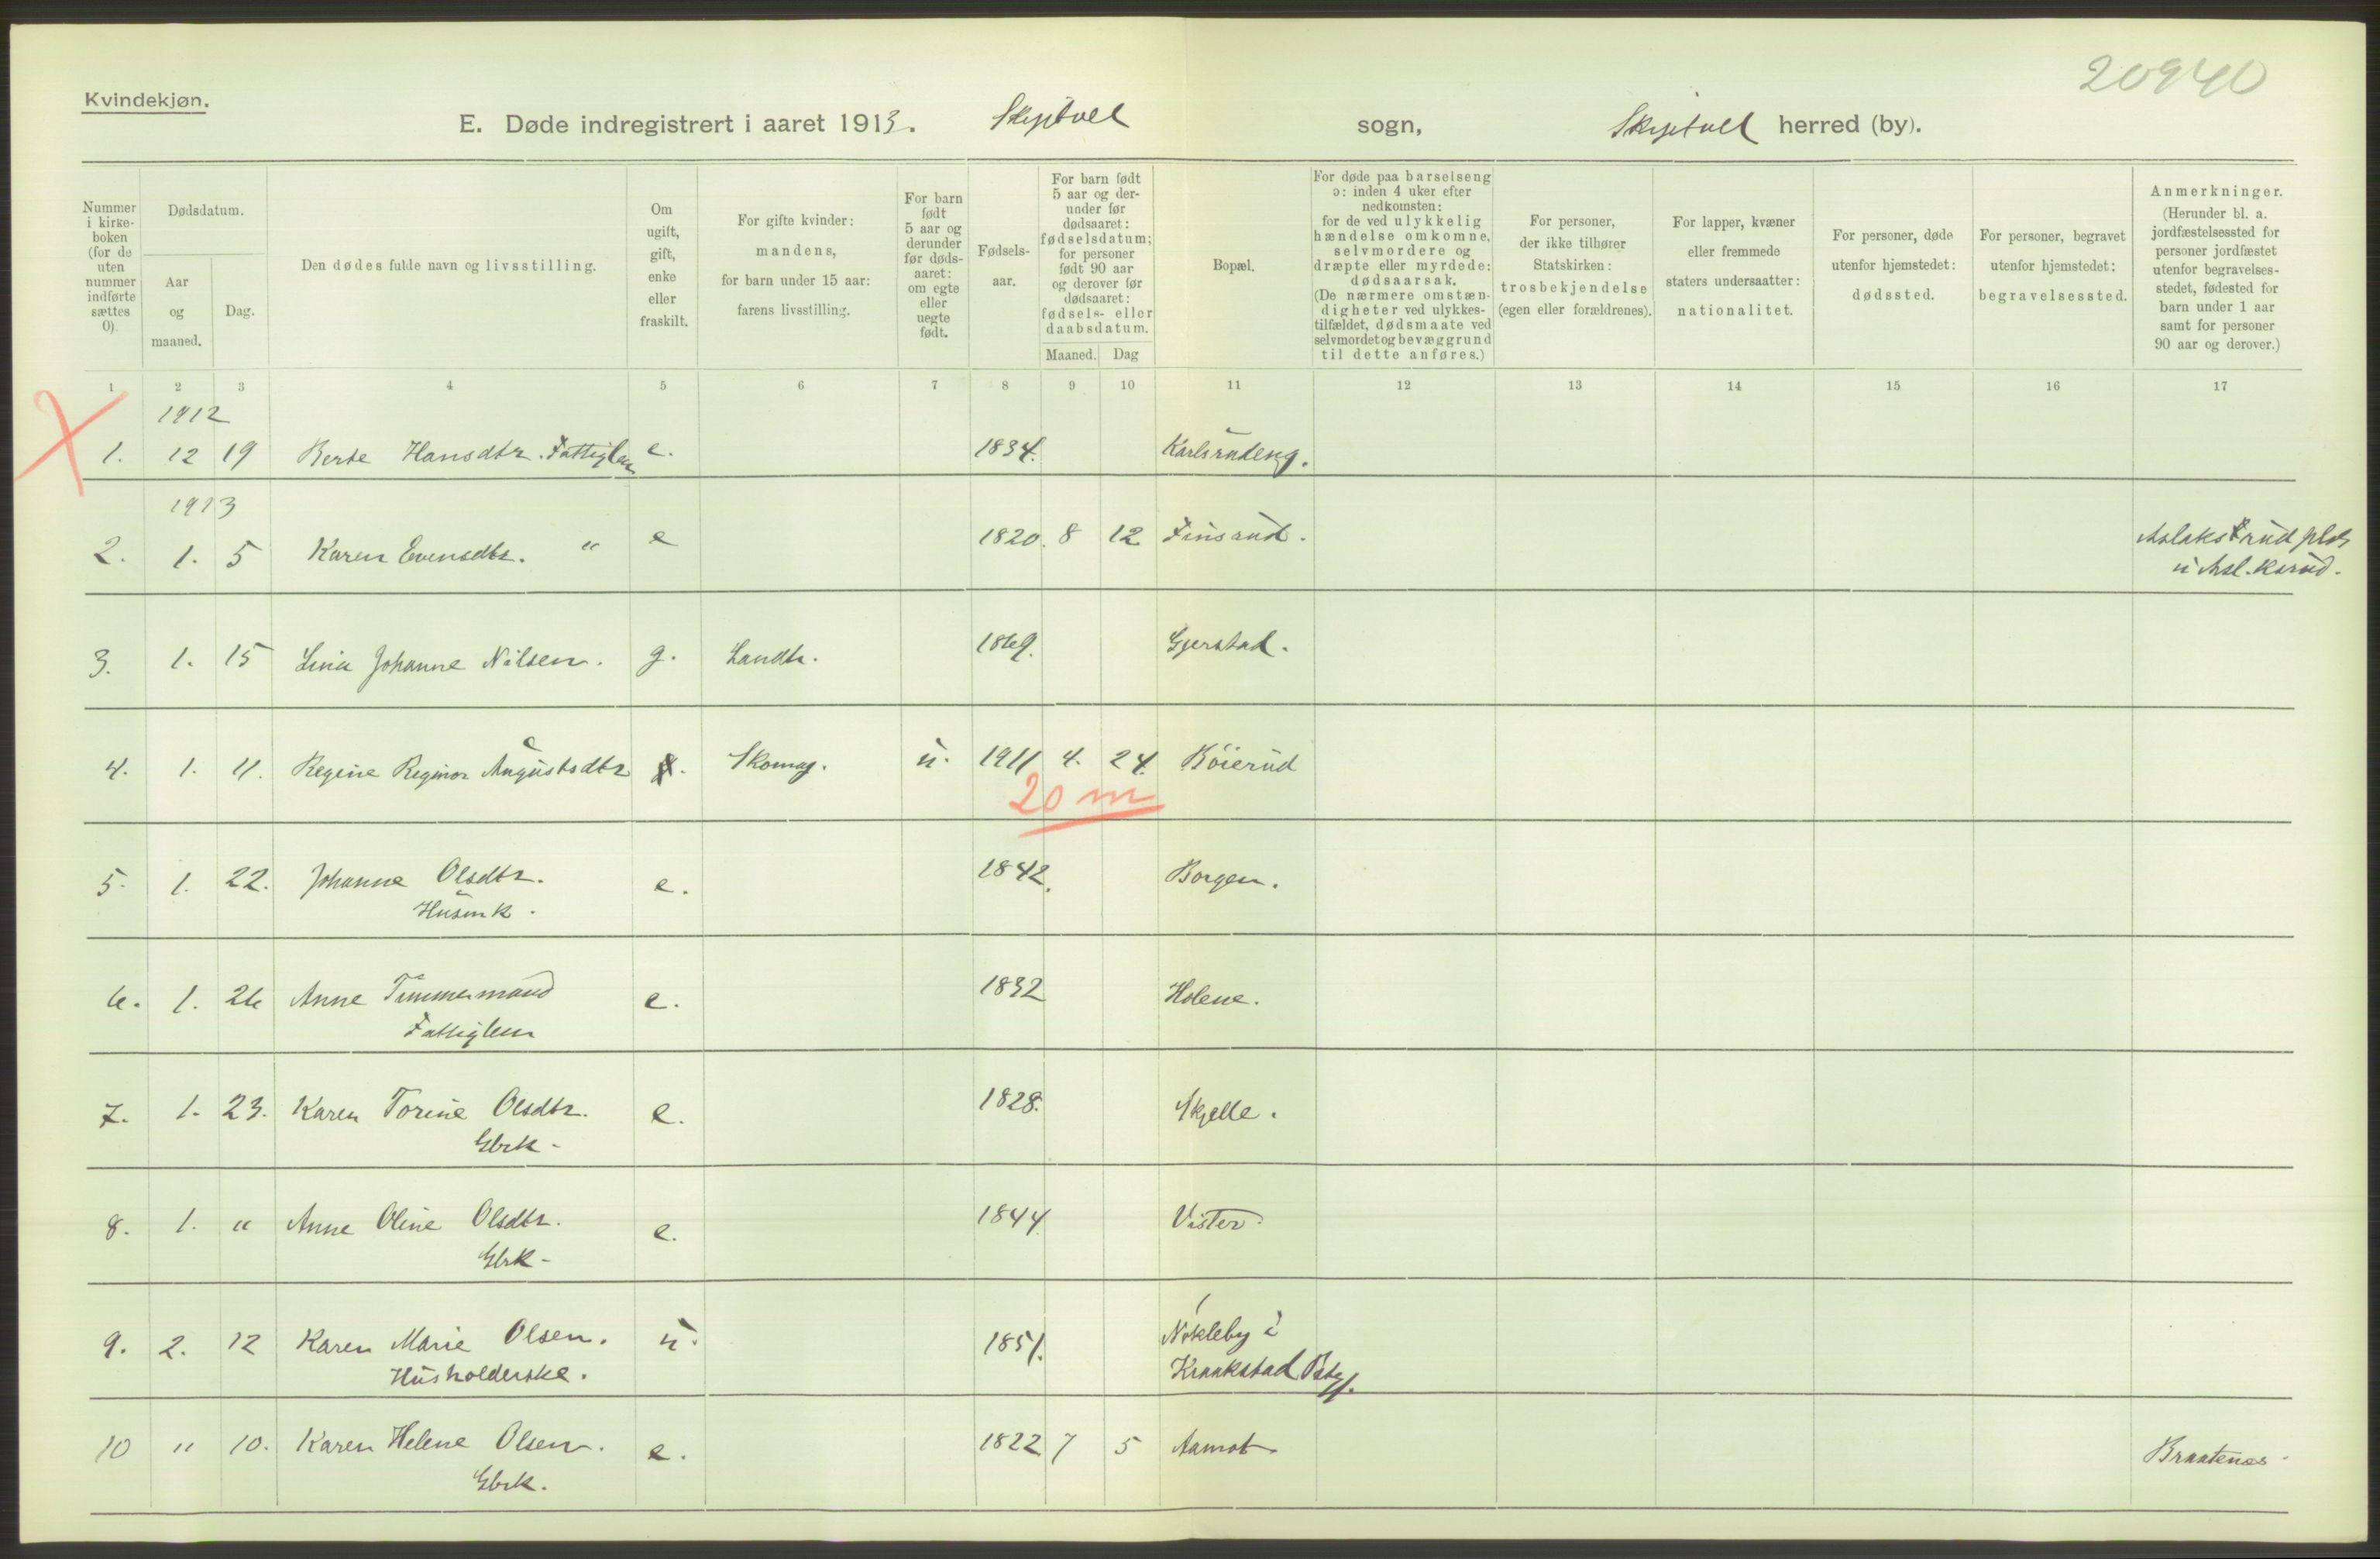 20940
Kvindekjøn.
E. Døde indregistrert i aaret 1913. Skiptvet sogn, Skiptvet herred (by).
Nummer i kirkeboken (for de uten nummer indførte sættes 0).
Dødsdatum.
Aar og maaned.
Dag.
Den dødes fulde navn og livsstilling.
Om ugift, gift, enke eller fraskilt.
For gifte kvinder: mandens, for barn under 15 aar: farens livsstilling.
For barn født 5 aar og derunder før dødsaaret: om egte eller uegte født.
Fødselsaar.
For barn født 5 aar og derunder før dødsaaret: fødselsdatum; for personer født 90 aar og derover før dødsaaret: fødsels- eller daabsdatum.
Maaned. Dag
Bopæl.
For døde paa barselseng ɔ: inden 4 uker efter nedkomsten: for de ved ulykkelig hændelse omkomne, selvmordere og dræpte eller myrdede: dødsaarsak. (De nærmere omstændigheter ved ulykkestilfældet, dødsmaate ved selvmordet og bevæggrund til dette anføres.)
For personer, der ikke tilhører Statskirken: trosbekjendelse (egen eller forældrenes).
For lapper, kvæner eller fremmede staters undersaatter: nationalitet.
For personer, døde utenfor hjemstedet: dødssted.
For personer, begravet utenfor hjemstedet: begravelsessted.
Anmerkninger. (Herunder bl. a. jordfæstelsessted for personer jordfæstet utenfor begravelsesstedet, fødested for barn under 1 aar samt for personer 90 aar og derover.)
1 2 3 4 5 6 7 8 9 10 11 12 13 14 15 16 17
1912
1. 12 19 Berte Hansdtr. Fattiglem e. 1834. Karlsrudeng.
1913
2. 1. 5 Karen Evensdtr. " e 1820. 8 12 Finsrud. Aslaksrud plds
u. Asl.ksrud.
3. 1. 15 Lina Johanne Nilsen. g. Landbr. 1869. Gjerstad.
4. 1. 11. Regine Reginor Augustsdtr Skomag. u. 1911 4. 24. Bøierud
20 m
5. 1. 22. Johanne Olsdtr. e. 1842. Borgen.
Husmk.
6. 1. 26 Anne Timmermand e. 1832 Holene.
Fattiglem
7. 1. 23. Karen Torine Olsdtr. e. 1828. Skjelle.
Gbrk -
8. 1. " Anne Oline Olsdtr. e. 1844 Vister
Gbrk -
9. 2. 12 Karen Marie Olsen. u. 1851. Nøkleby i
Husholderske. Kraakstad
10 " 10. Karen Helene Olsen. e. 1822 7 5 Aamot. Braatenes
Gbrk.